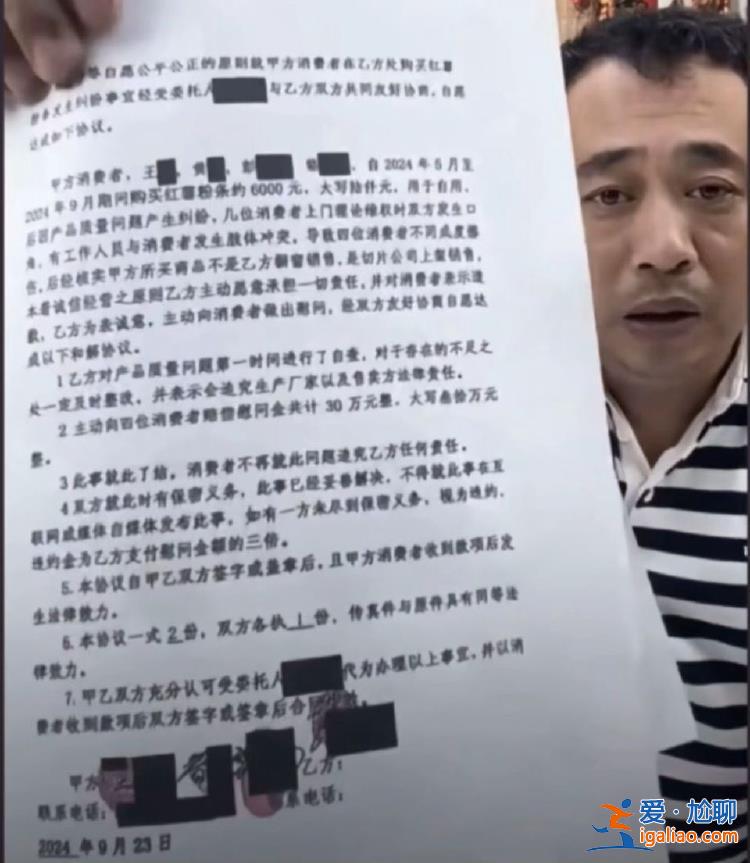 等自愿公平公正的原则就甲方消费者在乙方处购买红薯
粉条发生纠纷事宜经受委托人 与乙方双方共同友好协商,自愿
达成如下协议。
甲方消费者,王 ,黄 ,彭 , ,自2024年5月至
2024年9月期间购买红薯粉条约6000元,大写陆仟元,用于自用,
后因产品质量问题产生纠纷,几位消费者上门理论维权时双方发生口
角,有工作人员与消费者发生肢体冲突,导致四位消费者不同成度感
伤,后经核实甲方所买商品不是乙方橱窗销售,是切片公司上架销售,
本着诚信经营之原则乙方主动愿意承担一切责任,并对消费者表示道
歉,乙方为表诚意,主动向消费者做出慰问,经双方友好协商自愿达
成以下和解协议。
1乙方对产品质量问题第一时间进行了自查,对于存在的不足之
处一定及时整改,并表示会追究生产厂家以及售卖方法律责任。
2主动向四位消费者赔偿慰问金共计30万元整,大写叁拾万元
整。
3此事就此了结,消费者不再就此问题追究乙方任何责任。
4双方就此时有保密义务,此事已经妥善解决,不得就此事在互
联网或媒体自媒体发布此事,如有一方未尽到保密义务,视为违约,
违约金为乙方支付慰问金额的三倍。
5.本协议自甲乙双方签字或盖章后,且甲方消费者收到款项后发
生法律效力。
6.本协议一式2份,双方各执1份,传真件与原件具有同等法
律效力。
7.甲乙双方充分认可受委托人 代为办理以上事宜,并以消
费者收到款项后双方签字或签章后合
甲方 乙方:
联系电话: 系电话:
2024年9月23日
爱·尬聊
igaliao.com